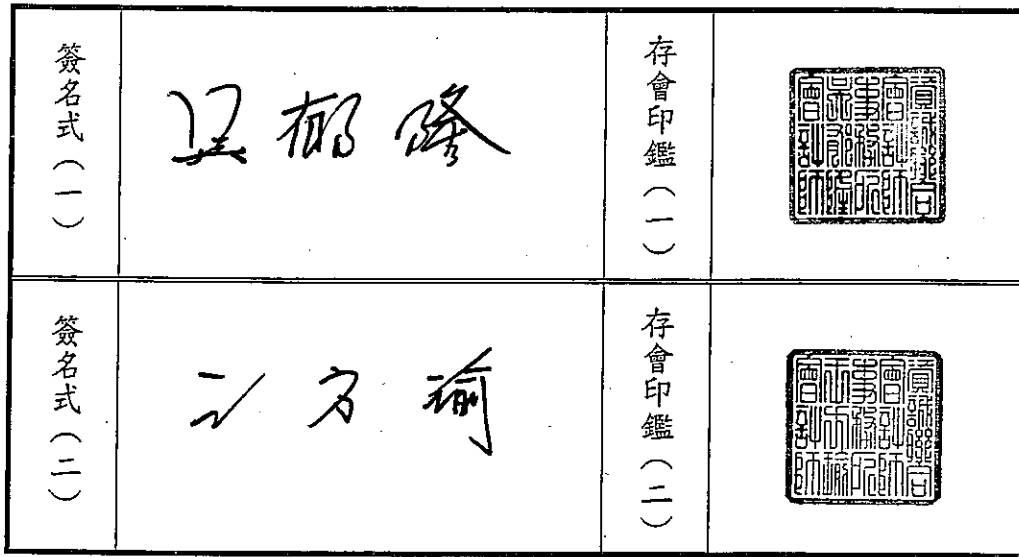 簽名式（一）
吳郁隆
存會印鑑（一）
資誠聯合
會計師
事務所
吳郁隆
會計師
簽名式（二）
王方瑜
存會印鑑（二）
資誠聯合
會計師
事務所
王方瑜
會計師